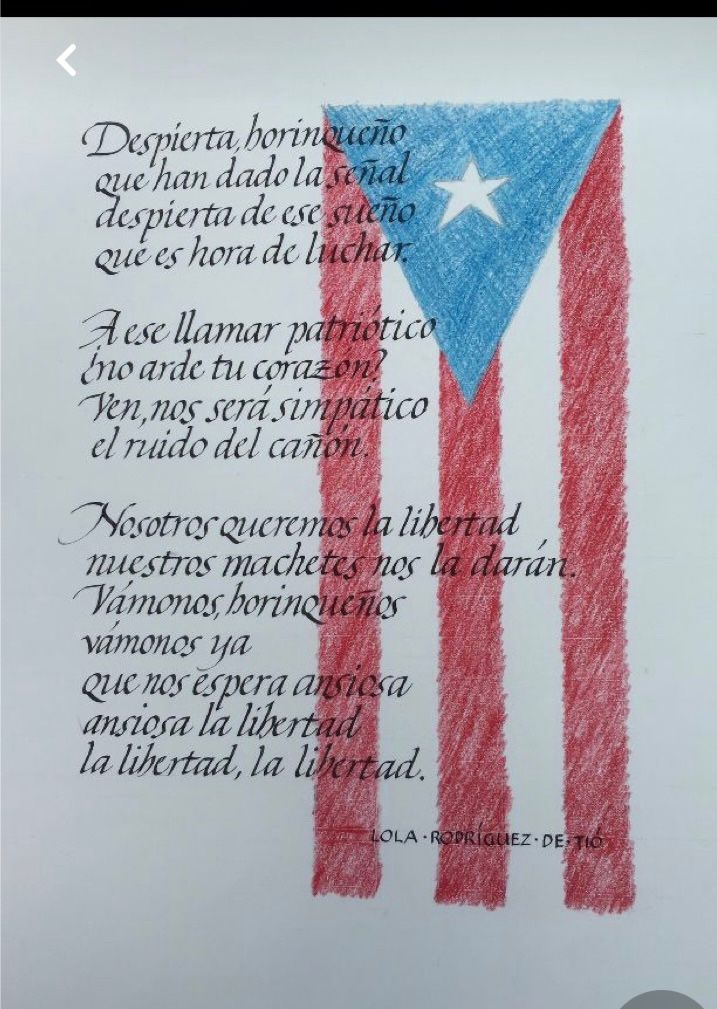 Despierta, borinqueño
que han dado la señal
despierta de ese sueño
que es hora de luchar.
A ese llamar patriótico
¿no arde tu corazón?
Ven, nos será simpático
el ruido del cañón.
Nosotros queremos la libertad
nuestros machetes nos la darán.
Vámonos, borinqueños
vámonos ya
que nos espera ansiosa
ansiosa la libertad
la libertad, la libertad.
LOLA · RODRÍGUEZ · DE · TIÓ